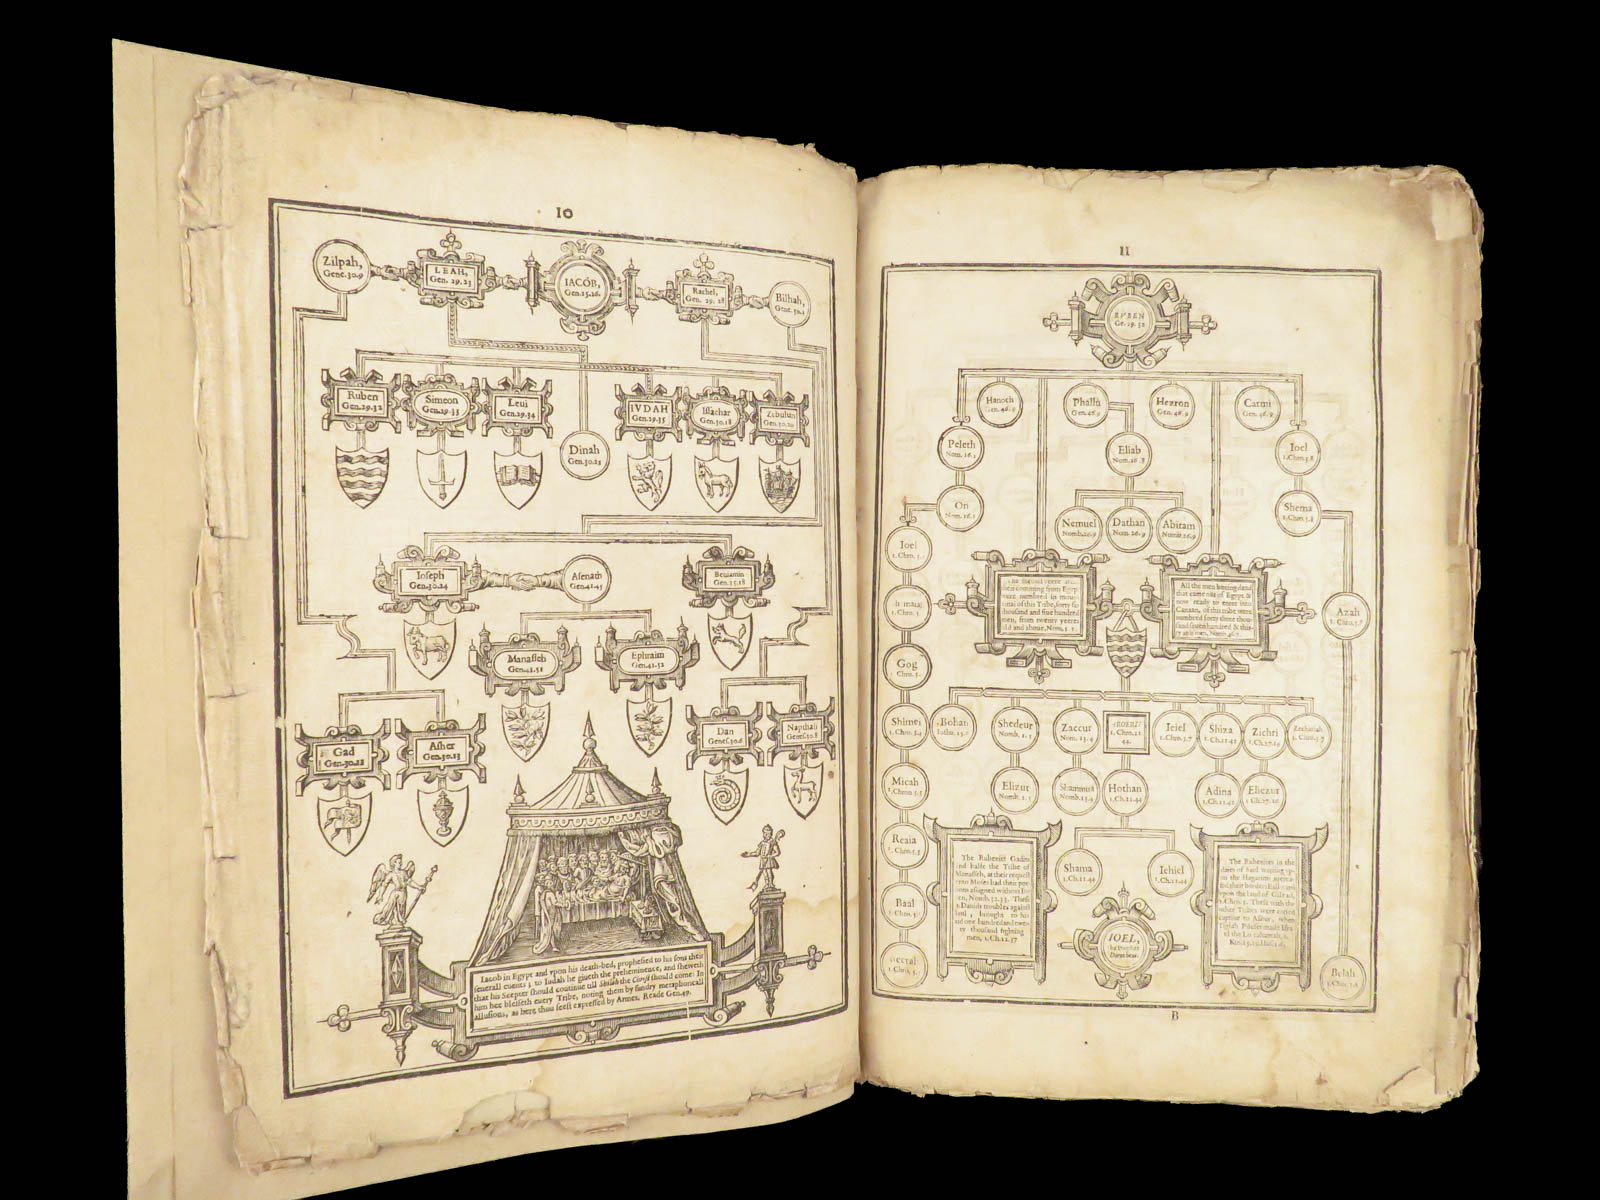 10
Zilpah,
Gene.30.9
LEAH,
Gen. 29.23
IACOB,
Gen.25.26.
Rachel,
Gen. 29. 28
Bilhah,
Gene.30.1
Ruben
Gen.29.32
Simeon
Gen.29.33
Leui
Gen.29.34
Dinah
Gen.30.21
IVDAH
Gen.29.35
Issachar
Gen.30.18
Zebulun
Gen.30.20
Ioseph
Gen.30.24
Asenath
Gen.41.45
Beniamin
Gen.35.18
Manasseh
Gen.41.51
Ephraim
Gen.41.52
Gad
Gen.30.11
Asher
Gen.30.13
Dan
Genes.30.6
Napthali
Genes.30.8
Iacob in Egypt and vpon his death-bed, prophesied to his sons their
seuerall euents; to Iudah he giueth the preheminence, and sheweth
that his Scepter should continue till Shiloh the Christ should come: In
him hee blesseth euery Tribe, noting them by sundry metaphoricall
allusions, as here thou seest expressed by Armes. Reade Gen.49.
11
RVBEN
Ge.29.32
Hanoch
Gen.46.9
Phallu
Gen.46.9
Hezron
Gen.46.9
Carmi
Gen.46.9
Peleth
Nom.16.1
Eliab
Nom.26.8
Ioel
1.Chro.5.8
On
Nom.16.1
Nemuel
Nomb.26.9
Dathan
Nom.26.9
Abiram
Nomb.26.9
Shema
1.Chro.5.8
Ioel
1.Chro.5.
their comming from Egypt
were numbred in
of this Tribe, forty six
thousand and fiue hundred
men, from twenty yeeres
old and aboue, Nom.1
All the men
that came out of Egypt, &
now ready to enter into
Canaan, of this tribe were
numbred forty three thou-
sand seuen hundred & thir-
ty men, Nomb.26.7.
Azah
1.Chro.5.8
Gog
1.Chro.5.
Shimei
1.Chro.5.4
Bohan
Iosh.15.6
Shedeur
Nomb.1.5
Zaccur
Nom.13.4
1.Chro.11.
44.
Ieiel
1.Chro.5.7
Shiza
1.Ch.11.42
Zichri
1.Ch.27.16
Zechariah
1.Chro.5.7
Micah
1.Chron.5.5
Elizur
Nomb.1.5
Shammua
Nomb.13.4
Hothan
1.Ch.11.44
Adina
1.Ch.11.42
Eliezur
1.Ch.27.16
Reaia
1.Chro.5.5
The Rubenits Gadits
and halfe the Tribe of
Manasseh, at their request
vnto Moses had their por-
tions assigned without Ior-
den, Nomb.32.33. These
in Dauids troubles against
Saul, brought to his
aid one hundred and twen-
ty thousand fighting
men, 1.Ch.12.37
Shama
1.Ch.11.44
Iehiel
1.Ch.11.44
The Rubenites in the
daies of Saul
the Hagarims
their
vpon the land of Gilead,
1.Chro.5. These with the
other Tribes were caried
captiue to Assur, when
Baal
1.Chro.5.
IOEL,
Beerah
1.Chro.5.
Belah
1.Chro.5.8
B